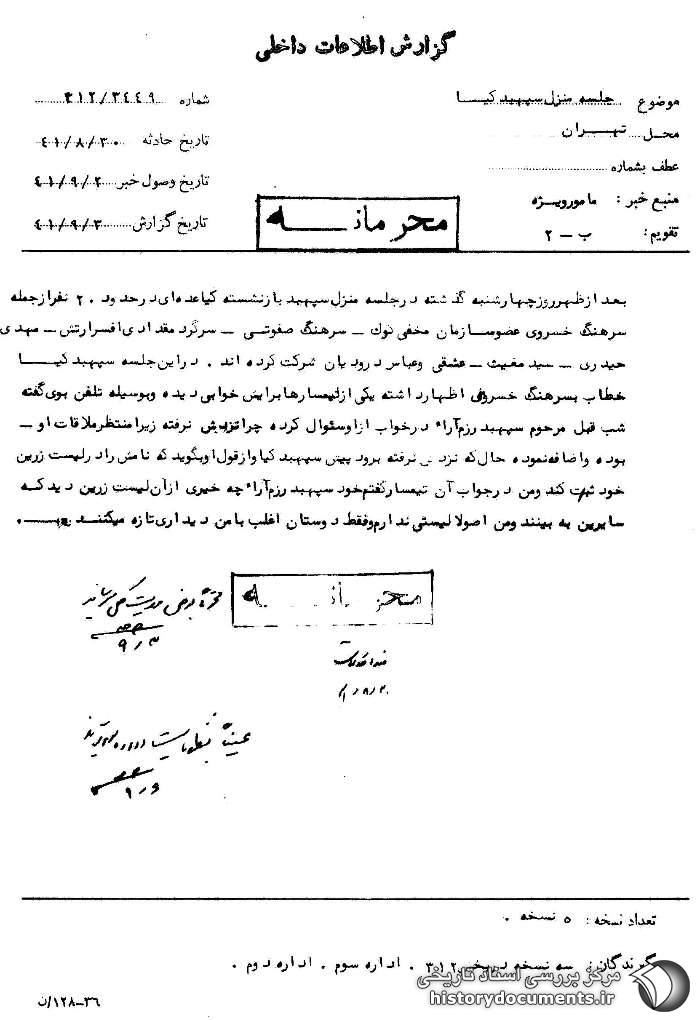 گزارش اطلاعات داخلی
موضوع جلسه منزل سپهبد کیا
شماره ۳۱۲/۳۴۴۹
محل تهران
تاریخ حادثه ۴۱/۸/۳۰
عطف بشماره
تاریخ وصول خبر ۴۱/۹/۲
منبع خبر : مامورویژه
تاریخ گزارش ۴۱/۹/۳
تقویم : ب – ۲
محرمانه
بعد از ظهر روز چهارشنبه گذشته در جلسه منزل سپهبد بازنشسته کیا عده‌ای در حدود ۲۰ نفر از جمله
سرهنگ خسروی عضو سازمان مخفی نوک – سرهنگ صفوتی – سرگرد مقدادی افسر ارتش – مهدی
حیدری – سید مغیث – عشقی و عباس درودیان شرکت کرده اند . در این جلسه سپهبد کیا
خطاب بسرهنگ خسروی اظهار داشته یکی از تیمسارها برایش خوابی دیده و بوسیله تلفن بوی گفته
شب قبل مرحوم سپهبد رزم‌آراء در خواب از او سئوال کرده چرا نزدش نرفته زیرا منتظر ملاقات او –
بوده و اضافه نموده حال که نزدش نرفته برود پیش سپهبد کیا و از قول او بگوید که نامش را در لیست زرین
خود ثبت کند و من در جواب آن تیمسار گفتم خود سپهبد رزم‌آراء چه خیری از آن لیست زرین دید که
سایرین به بینند و من اصولا لیستی ندارم و فقط دوستان اغلب با من دیداری تازه میکنند
محرمانه
۹/۳
۹/۶
تعداد نسخه : ۵ نسخه .
گیرندگان : سه نسخه در بخش ۳۱۲ . اداره سوم . اداره دوم .
مرکز بررسی اسناد تاریخی
historydocuments.ir
۳۶–۱۲۸/ن